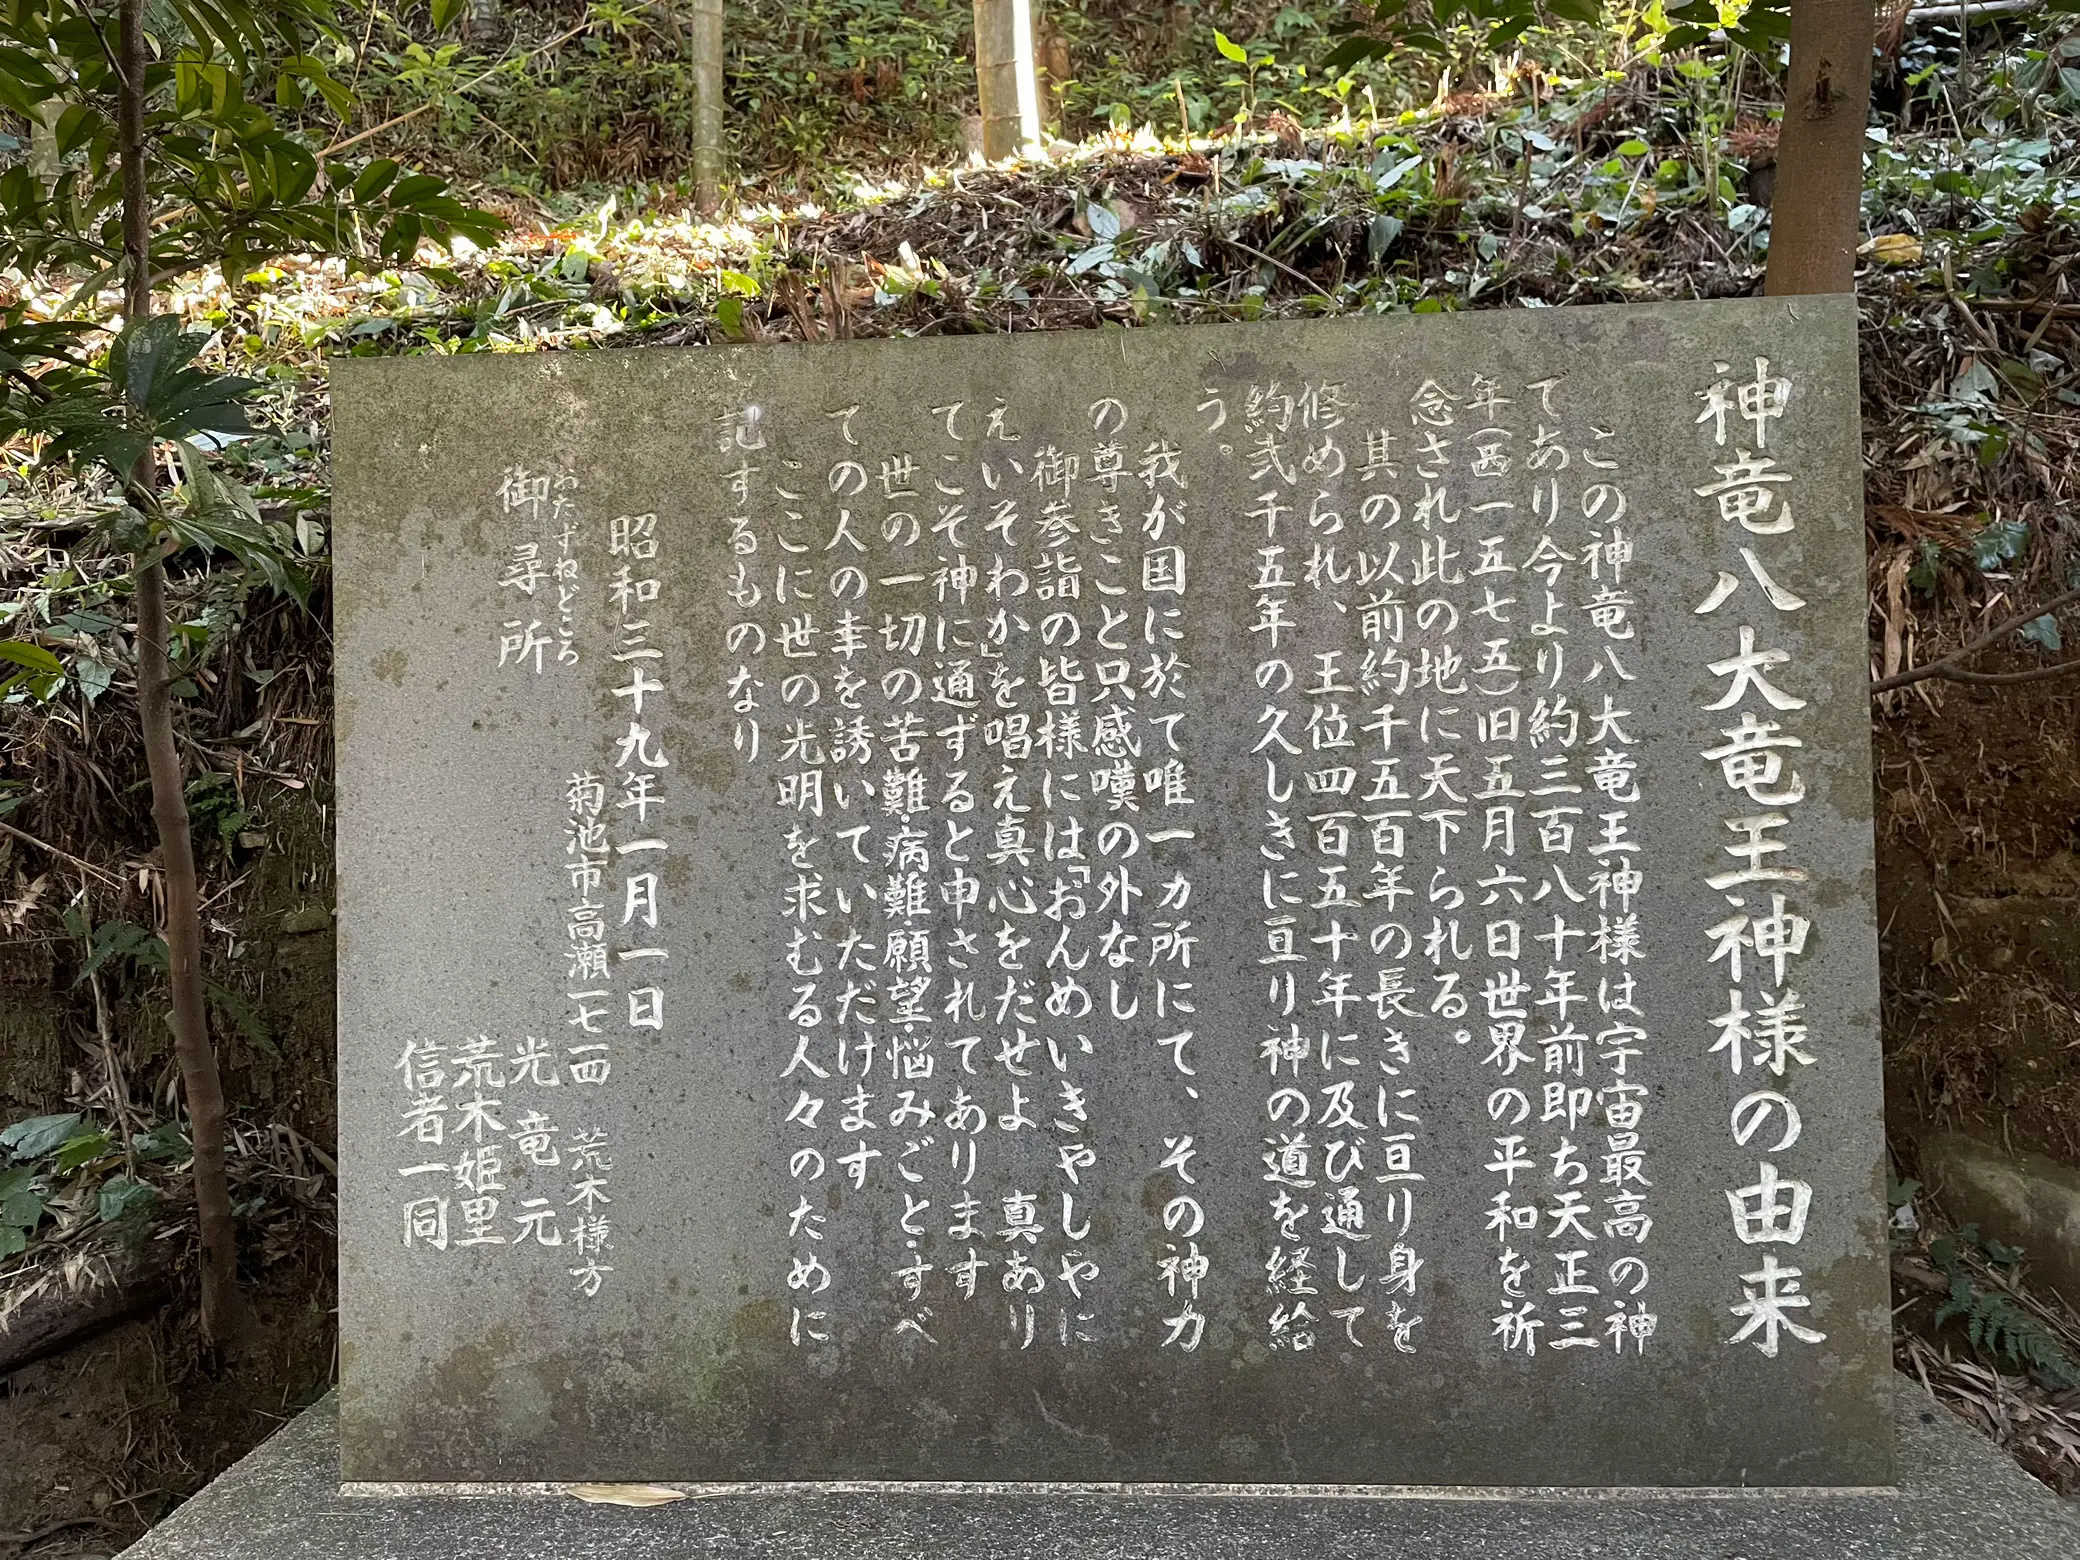 神竜八大竜王神様の由来
この神竜八大竜王神様は宇宙最高の神
であり今より約三百八十年前即ち天正三
年(西一五七五)旧五月六日世界の平和を祈
念され此の地に天下られる。
其の以前約千五百年の長きに亘り身を
修められ、王位四百五十年に及び通して
約弐千五年の久しきに亘り神の道を経給
う。
我が国に於て唯一カ所にて、その神力
の尊きこと只感嘆の外なし
御参詣の皆様には「おんめいきやしやに
えいそわか」を唱え真心をだせよ 真あり
てこそ神に通ずると申されてあります
世の一切の苦難・病難・願望・悩みごと・すべ
ての人の幸を誘いていただけます
ここに世の光明を求むる人々のために
記するものなり
昭和三十九年一月一日
菊池市高瀬一七一四 荒木様方
おたずねどころ
御尋所
光竜元
荒木姫里
信者一同